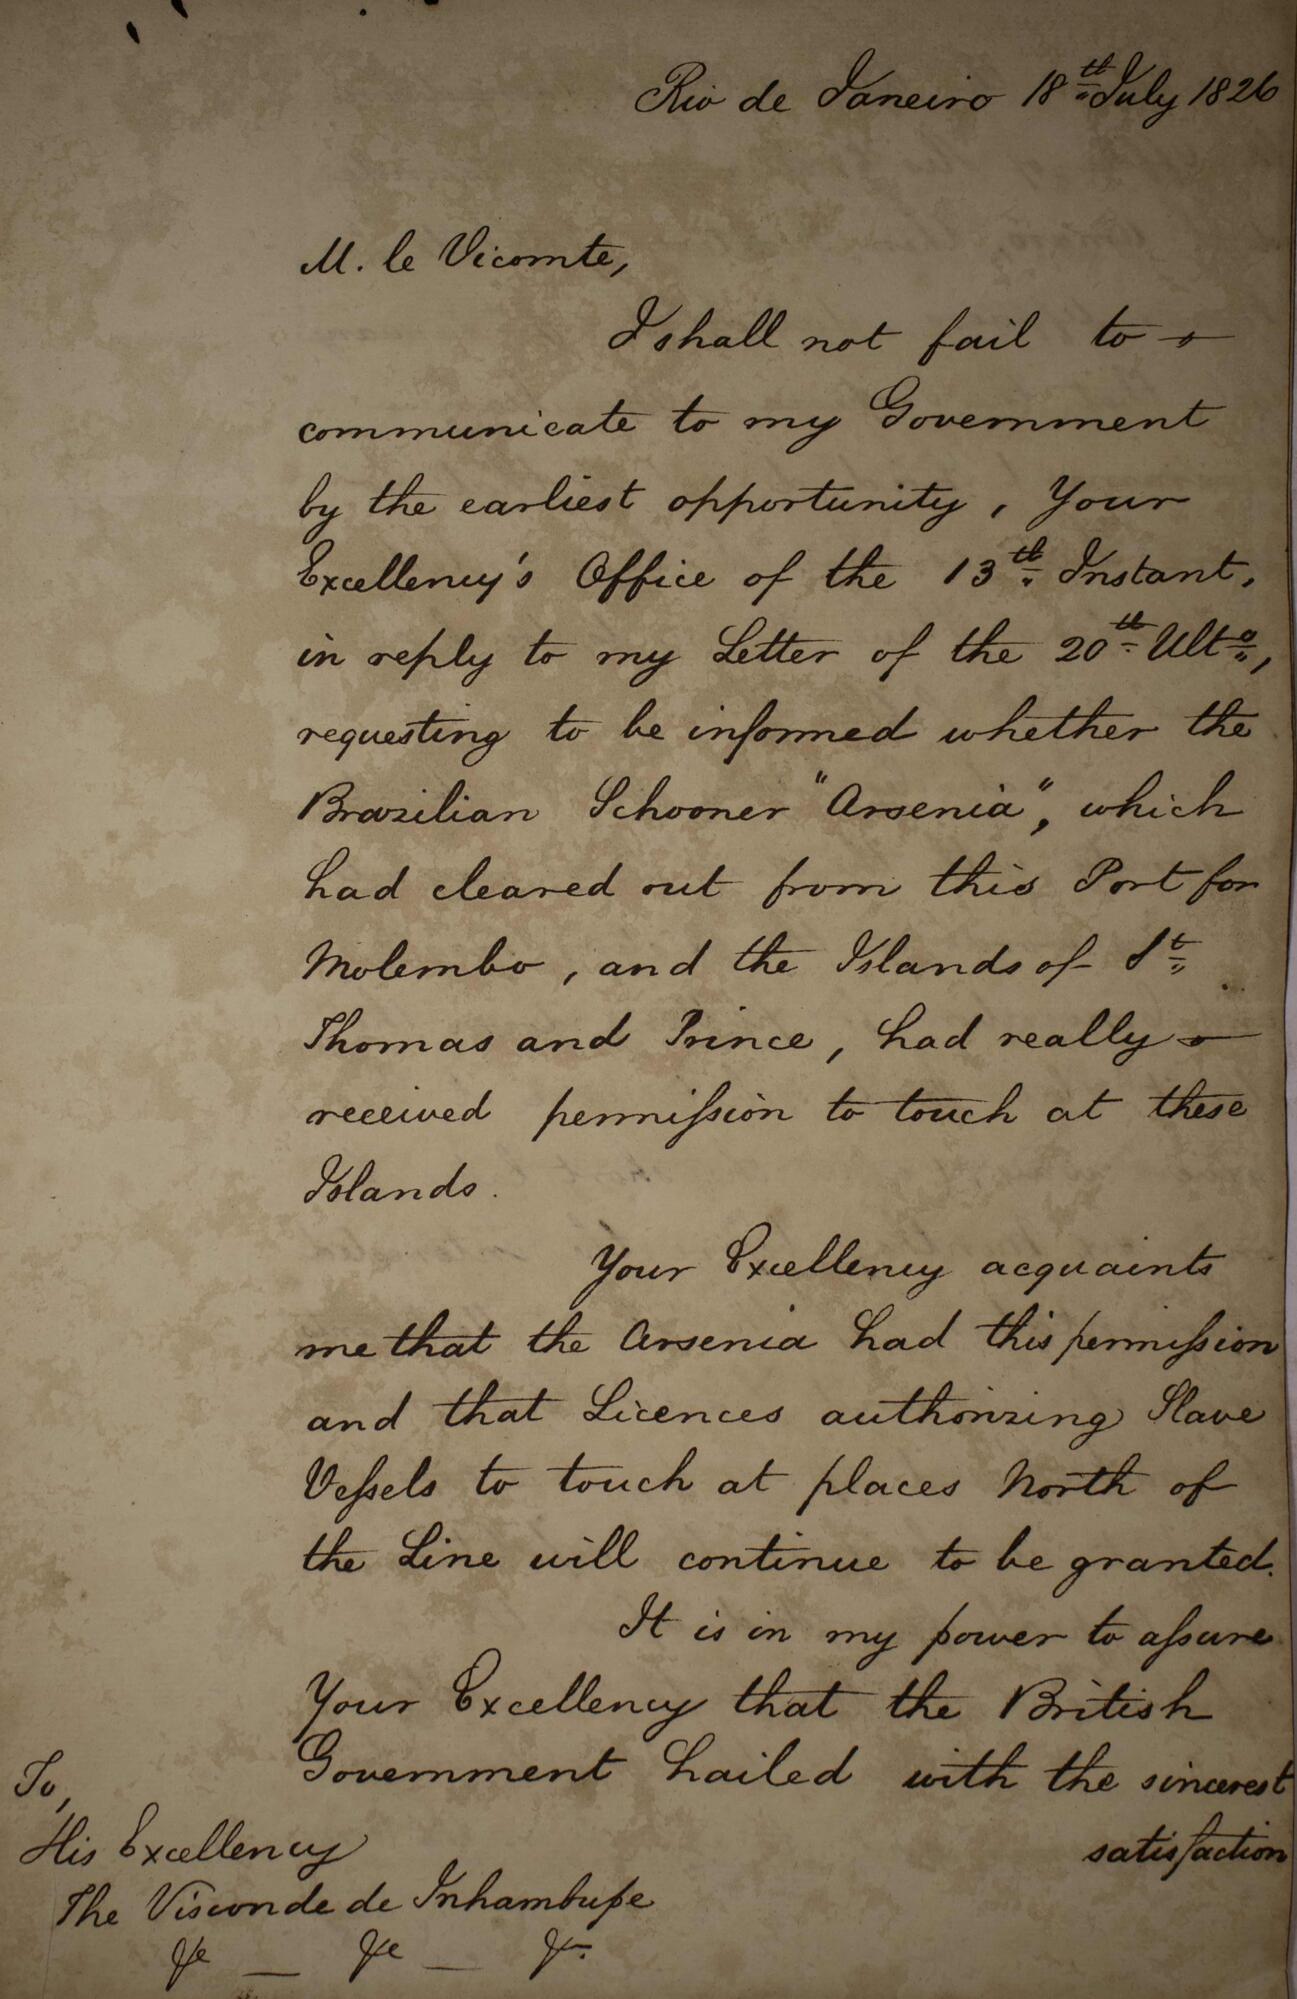 Rio de Janeiro 18th July 1826
M. le Vicomte,
I shall not fail to
communicate to my Government
by the earliest opportunity, Your
Excellency's Office of the 13th Instant,
in reply to my Letter of the 20th Ulto,
requesting to be informed whether the
Brazilian Schooner "Arsenia", which
had cleared out from this Port for
Molembo, and the Islands of St
Thomas and Prince, had really
received permiſsion to touch at these
Islands.
Your Excellency acquaints
me that the Arsenia had this permiſsion
and that Licences authorizing Slave
Veſsels to touch at places North of
the Line will continue to be granted.
It is in my power to aſsure
Your Excellency that the British
Government hailed with the sincerest
satisfaction
To,
His Excellency
The Visconde de Inhambupe
&c — &c — &c.